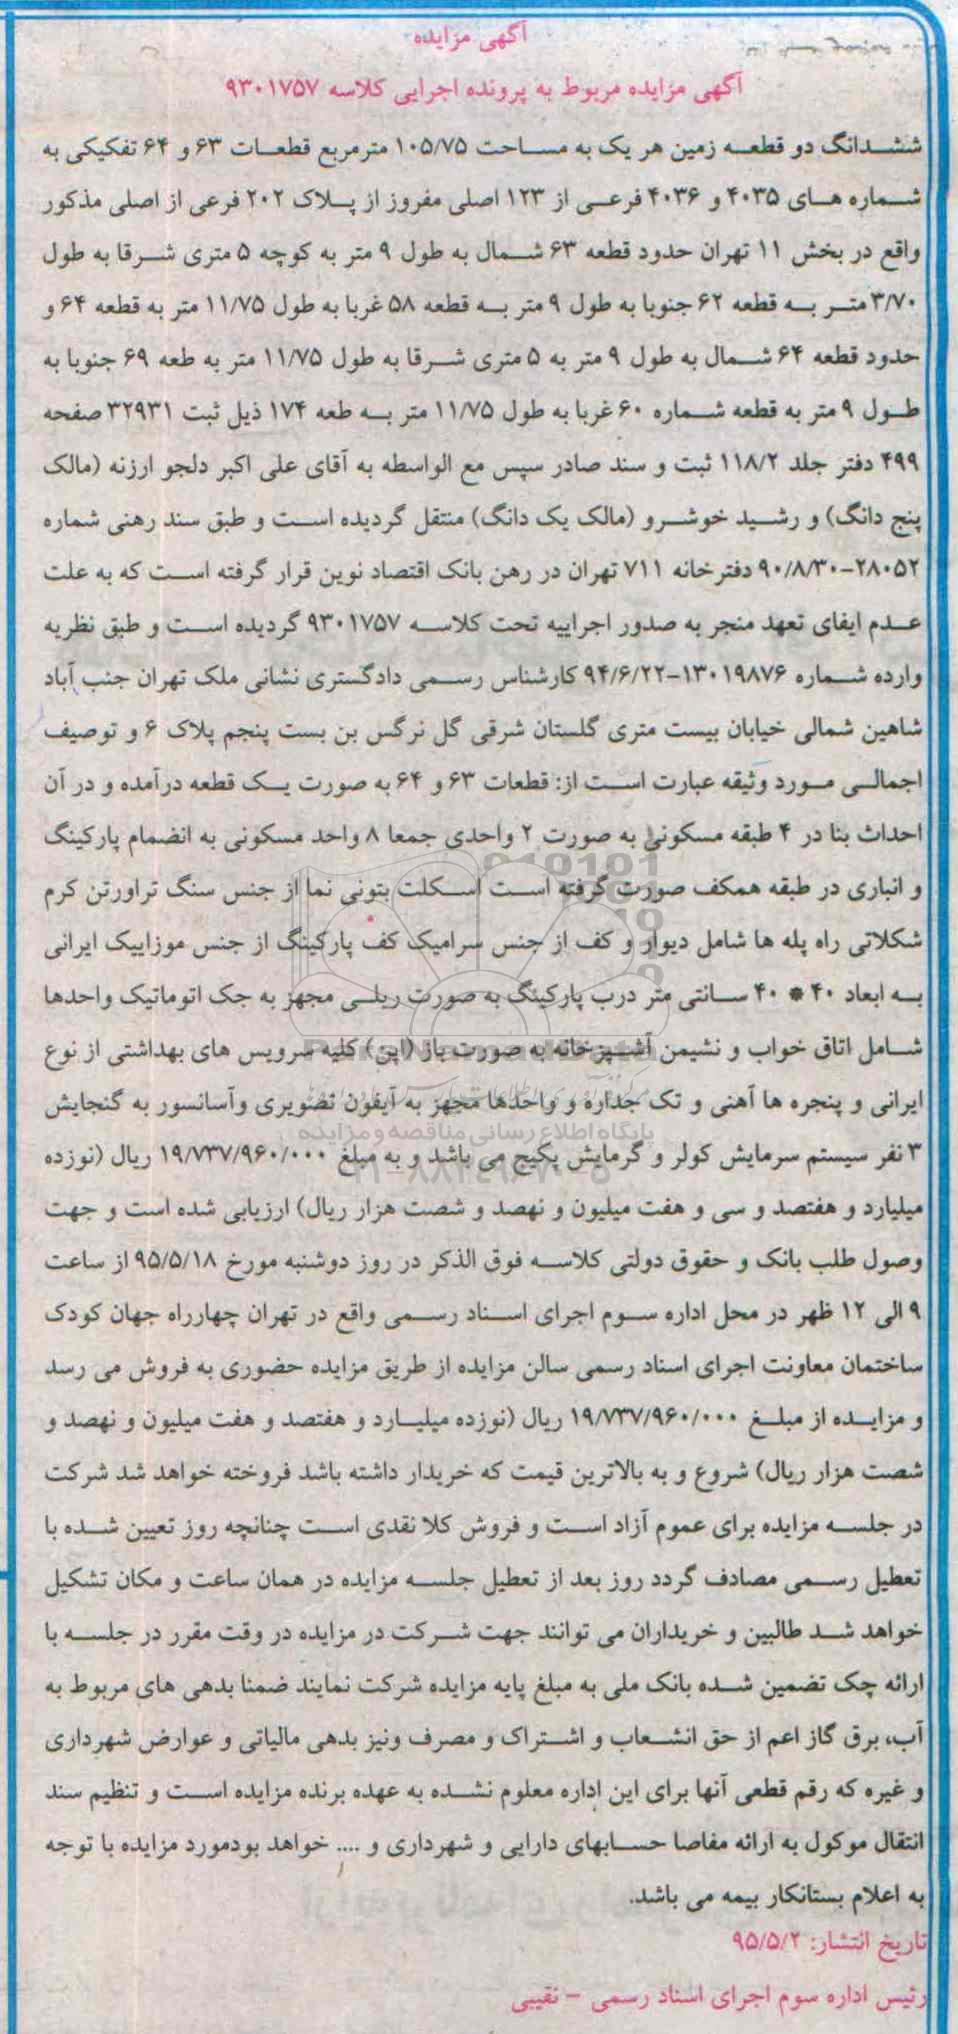 آگهی مزایده
آگهی مزایده مربوط به پرونده اجرایی کلاسه ۹۳۰۱۷۵۷
ششدانگ دو قطعه زمین هر یک به مساحت ۱۰۵/۷۵ مترمربع قطعات ۶۳ و ۶۴ تفکیکی به
شماره های ۴۰۳۵ و ۴۰۳۶ فرعی از ۱۲۳ اصلی مفروز از پلاک ۲۰۲ فرعی از اصلی مذکور
واقع در بخش ۱۱ تهران حدود قطعه ۶۳ شمال به طول ۹ متر به کوچه ۵ متری شرقا به طول
۳/۷۰ متر به قطعه ۶۲ جنوبا به طول ۹ متر به قطعه ۵۸ غربا به طول ۱۱/۷۵ متر به قطعه ۶۴ و
حدود قطعه ۶۴ شمال به طول ۹ متر به ۵ متری شرقا به طول ۱۱/۷۵ متر به طعه ۶۹ جنوبا به
طول ۹ متر به قطعه شماره ۶۰ غربا به طول ۱۱/۷۵ متر به طعه ۱۷۴ ذیل ثبت ۳۲۹۳۱ صفحه
۴۹۹ دفتر جلد ۱۱۸/۲ ثبت و سند صادر سپس مع الواسطه به آقای علی اکبر دلجو ارزنه (مالک
پنج دانگ) و رشید خوشرو (مالک یک دانگ) منتقل گردیده است و طبق سند رهنی شماره
۲۸۰۵۲-۹۰/۸/۳۰ دفترخانه ۷۱۱ تهران در رهن بانک اقتصاد نوین قرار گرفته است که به علت
عدم ایفای تعهد منجر به صدور اجراییه تحت کلاسه ۹۳۰۱۷۵۷ گردیده است و طبق نظریه
وارده شماره ۱۳۰۱۹۸۷۶-۹۴/۶/۲۲ کارشناس رسمی دادگستری نشانی ملک تهران جنب آباد
شاهین شمالی خیابان بیست متری گلستان شرقی گل نرگس بن بست پنجم پلاک ۶ و توصیف
اجمالی مورد وثیقه عبارت است از: قطعات ۶۳ و ۶۴ به صورت یک قطعه درآمده و در آن
احداث بنا در ۴ طبقه مسکونی به صورت ۲ واحدی جمعا ۸ واحد مسکونی به انضمام پارکینگ
و انباری در طبقه همکف صورت گرفته است اسکلت بتونی نما از جنس سنگ تراورتن کرم
شکلاتی راه پله ها شامل دیوار و کف از جنس سرامیک کف پارکینگ از جنس موزاییک ایرانی
به ابعاد ۴۰ * ۴۰ سانتی متر درب پارکینگ به صورت ریلی مجهز به جک اتوماتیک واحدها
شامل اتاق خواب و نشیمن آشپزخانه به صورت باز (اپن) کلیه سرویس های بهداشتی از نوع
ایرانی و پنجره ها آهنی و تک جداره و واحدها مجهز به آیفون تصویری وآسانسور به گنجایش
پایگاه اطلاع رسانی مناقصه و مزایده
۳ نفر سیستم سرمایش کولر و گرمایش پکیج می باشد و به مبلغ ۱۹/۷۳۷/۹۶۰/۰۰۰ ریال (نوزده
میلیارد و هفتصد و سی و هفت میلیون و نهصد و شصت هزار ریال) ارزیابی شده است و جهت
وصول طلب بانک و حقوق دولتی کلاسه فوق الذکر در روز دوشنبه مورخ ۹۵/۵/۱۸ از ساعت
۹ الی ۱۲ ظهر در محل اداره سوم اجرای اسناد رسمی واقع در تهران چهارراه جهان کودک
ساختمان معاونت اجرای اسناد رسمی سالن مزایده از طریق مزایده حضوری به فروش می رسد
و مزایده از مبلغ ۱۹/۷۳۷/۹۶۰/۰۰۰ ریال (نوزده میلیارد و هفتصد و هفت میلیون و نهصد و
شصت هزار ریال) شروع و به بالاترین قیمت که خریدار داشته باشد فروخته خواهد شد شرکت
در جلسه مزایده برای عموم آزاد است و فروش کلا نقدی است چنانچه روز تعیین شده با
تعطیل رسمی مصادف گردد روز بعد از تعطیل جلسه مزایده در همان ساعت و مکان تشکیل
خواهد شد طالبین و خریداران می توانند جهت شرکت در مزایده در وقت مقرر در جلسه با
ارائه چک تضمین شده بانک ملی به مبلغ پایه مزایده شرکت نمایند ضمنا بدهی های مربوط به
آب، برق گاز اعم از حق انشعاب و اشتراک و مصرف ونیز بدهی مالیاتی و عوارض شهرداری
و غیره که رقم قطعی آنها برای این اداره معلوم نشده به عهده برنده مزایده است و تنظیم سند
انتقال موکول به ارائه مفاصا حسابهای دارایی و شهرداری و .... خواهد بودمورد مزایده با توجه
به اعلام بستانکار بیمه می باشد.
تاریخ انتشار: ۹۵/۵/۲
رئیس اداره سوم اجرای اسناد رسمی - نقیبی